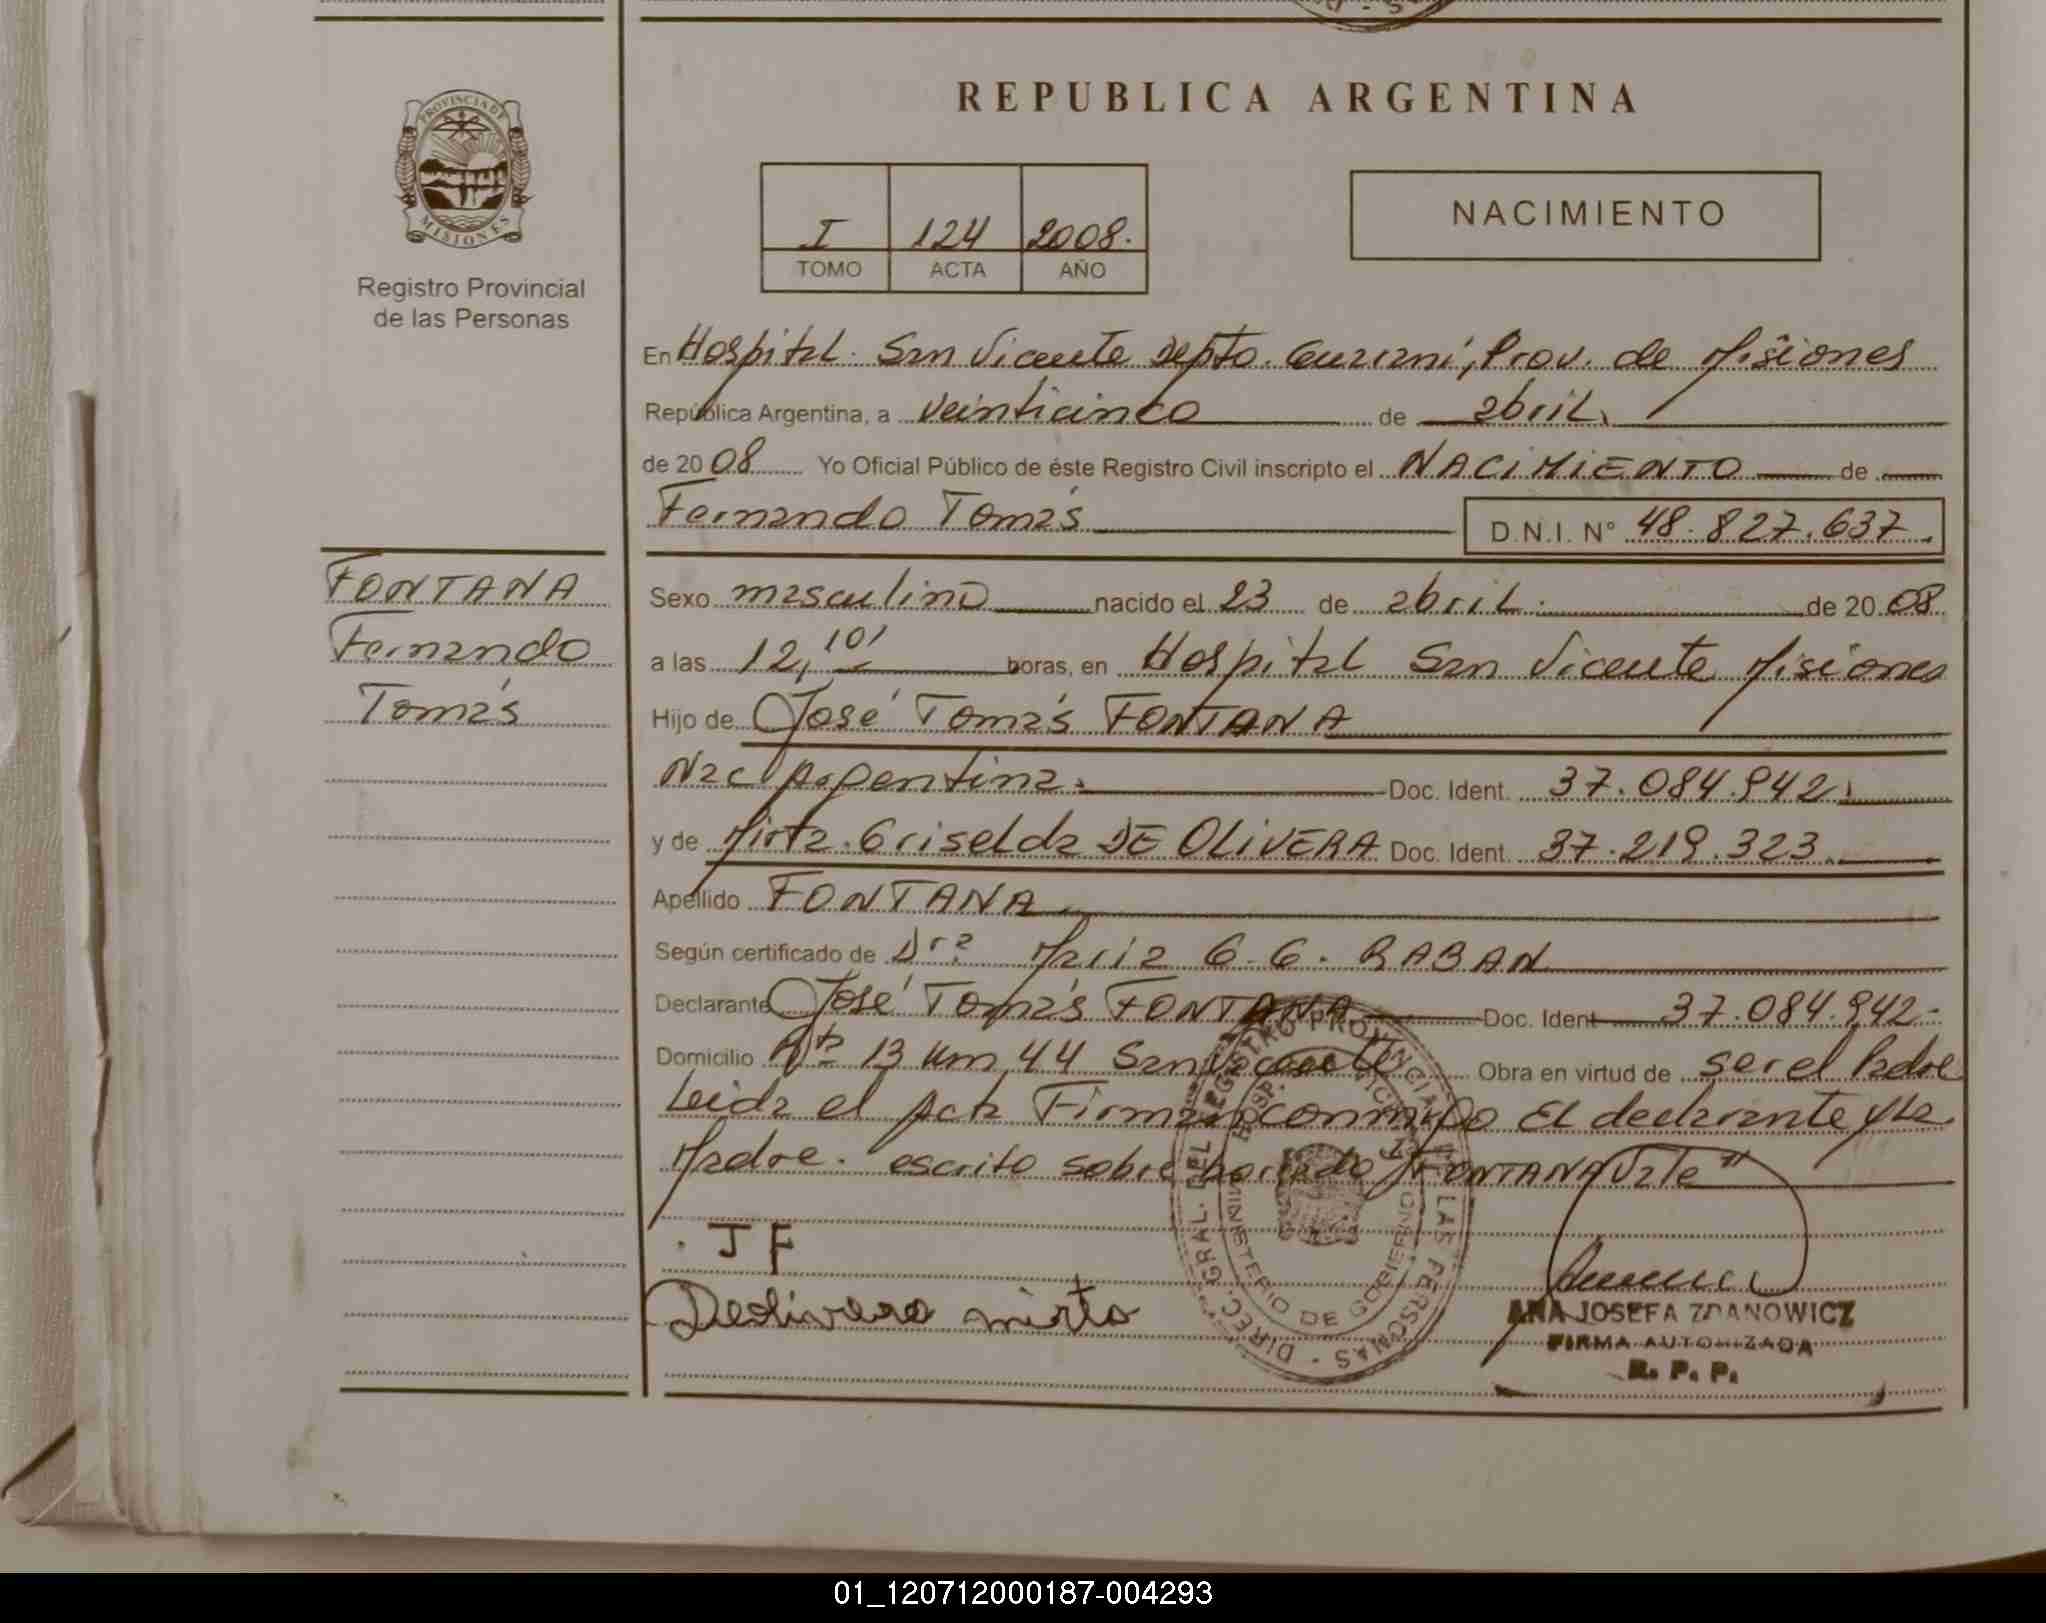 REPUBLICA ARGENTINA
PROVINCIA DE
MISIONES
Registro Provincial
de las Personas
I 124 2008.
TOMO ACTA AÑO
NACIMIENTO
En Hospital San Vicente Depto. Guaraní, Prov. de Misiones
República Argentina, a veinticinco de abril
de 2008 Yo Oficial Público de éste Registro Civil inscripto el NACIMIENTO de
Fernando Tomás D.N.I. N° 48.827.637
FONTANA
Fernando
Tomás
Sexo masculino nacido el 23 de abril de 2008
a las 12,10' horas, en Hospital San Vicente Misiones
Hijo de José Tomás FONTANA
Nac Argentina. Doc. Ident. 37.084.942
y de Mirta Griselda DE OLIVERA Doc. Ident. 37.219.323
Apellido FONTANA
Según certificado de Dra María G. G. RABAN
Declarante José Tomás FONTANA Doc. Ident 37.084.942-
Domicilio Rta 13 Km 44 San Vicente Obra en virtud de ser el Padre
Leida el Acta Firman conmigo El declarante y La
Madre. escrito sobre borrado "FONTANA Vale"
J F
Deolivera mirta
DIREC. GRAL. DEL REGISTRO PROVINCIAL DE LAS PERSONAS
MINISTERIO DE GOBIERNO
ANA JOSEFA ZDANOWICZ
FIRMA AUTORIZADA
R. P. P.
01_120712000187-004293